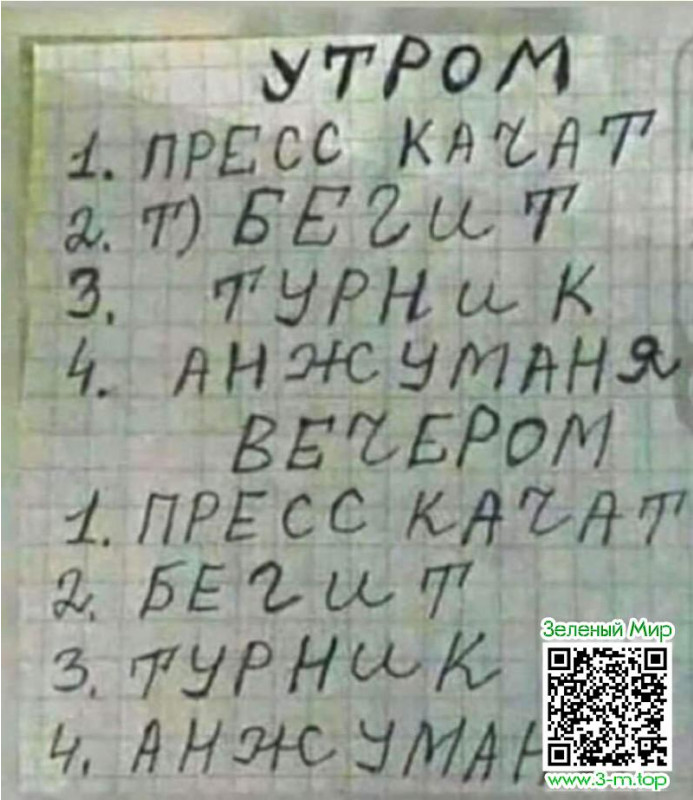 УТРОМ
1. ПРЕСС КАЧАТ
2. Т) БЕГИТ
3. ТУРНИК
4. АНЖУМАНЯ
ВЕЧЕРОМ
1. ПРЕСС КАЧАТ
2. БЕГИТ
3. ТУРНИК
4. АНЖУМАН
Зеленый Мир
www.3-m.top